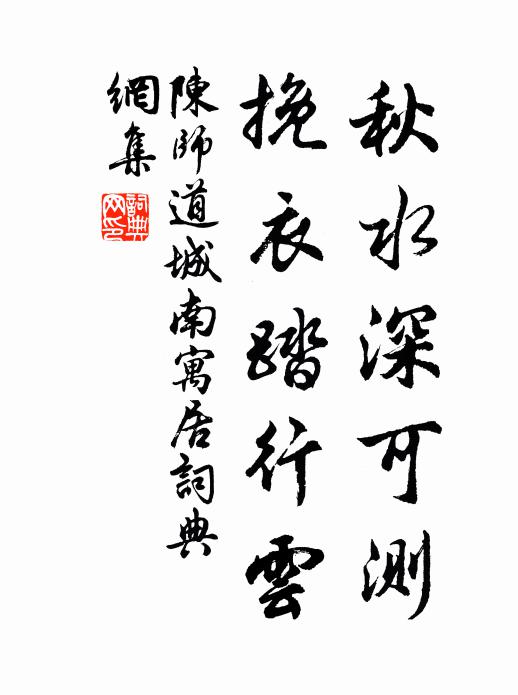 秋水深可測
挽衣踏行雲
陳師道城南寓居詞典
網集
詞典网印